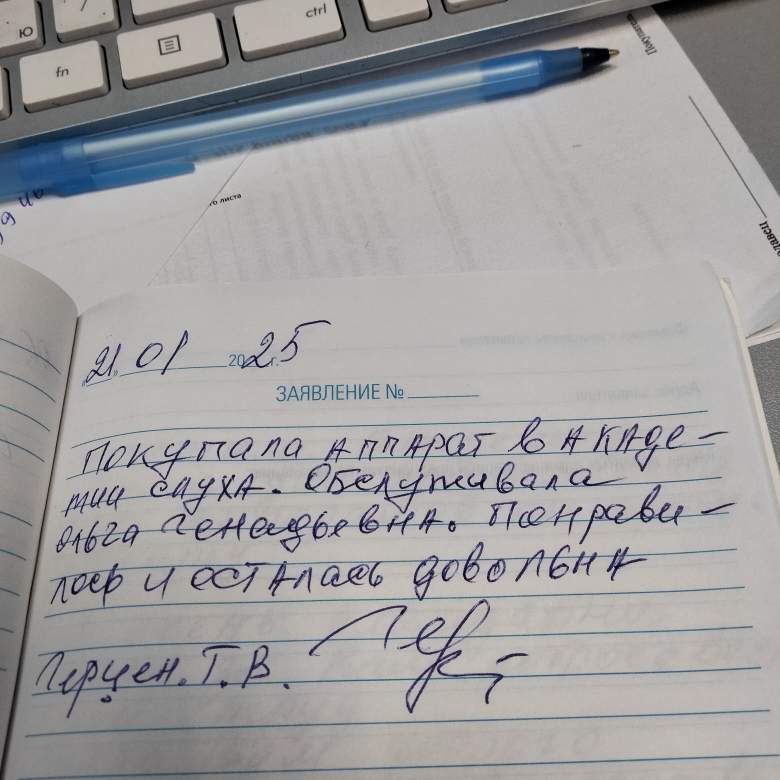 Ю
fn
ctrl
Покупатель
го листа
"21" 01 2025 г.
ЗАЯВЛЕНИЕ №
Покупала аппарат в Акаде-
мии слуха. Обслуживала
Ольга Генадьевна. Понрави-
лось и осталась довольна
Герцен. Т. В.